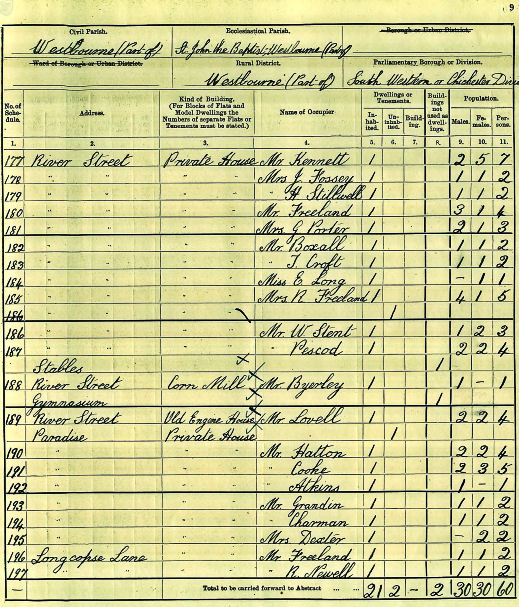 9
Civil Parish. Ecclesiastical Parish. Borough or Urban District.
Westbourne (Part of) St. John the Baptist, Westbourne (Part of)
Ward of Borough or Urban District. Rural District. Parliamentary Borough or Division.
Westbourne (Part of) South Western or Chichester
No. of Schedule. Address. Kind of Building. (For Blocks of Flats and Model Dwellings the Numbers of separate Flats or Tenements must be stated.) Name of Occupier Dwellings or Tenements. Inhabited. Uninhabited. Building. Buildings not used as dwellings. Population. Males. Females. Persons.
1. 2. 3. 4. 5. 6. 7. 8. 9. 10. 11.
177 River Street Private House Mr. Kennett 1 2 5 7
178 " " Mrs J. Fossey 1 1 1 2
179 " " " H Stillwell 1 1 1 2
180 " " Mr. Freeland 1 3 1 4
181 " " Mrs. G Porter 1 2 1 3
182 " " Mr. Boxall 1 1 1 2
183 " " " T. Croft 1 1 1 2
184 " " Miss E. Long 1 - 1 1
185 " " Mrs N. Freeland 1 4 1 5
186 " 1
186 " " Mr. W. Stent 1 1 2 3
187 " " " Pescod 1 2 2 4
Stables 1
188 River Street Corn Mill Mr. Byerley 1 1 - 1
Gymnasium 1
189 River Street Old Engine House Mr. Lovell 1 2 2 4
Paradise Private House 1
190 " " Mr. Hatton 1 2 2 4
191 " " " Cooke 1 2 3 5
192 " " " Atkins 1 1 - 1
193 " " Mr. Grandin 1 1 1 2
194 " " " Charman 1 1 1 2
195 " " Mrs Dexter 1 - 2 2
196 Longcopse Lane " Mr. Freeland 1 1 1 2
197 " " " R. Newell 1 1 1 2
— Total to be carried forward to Abstract ... ... 21 2 - 2 30 30 60